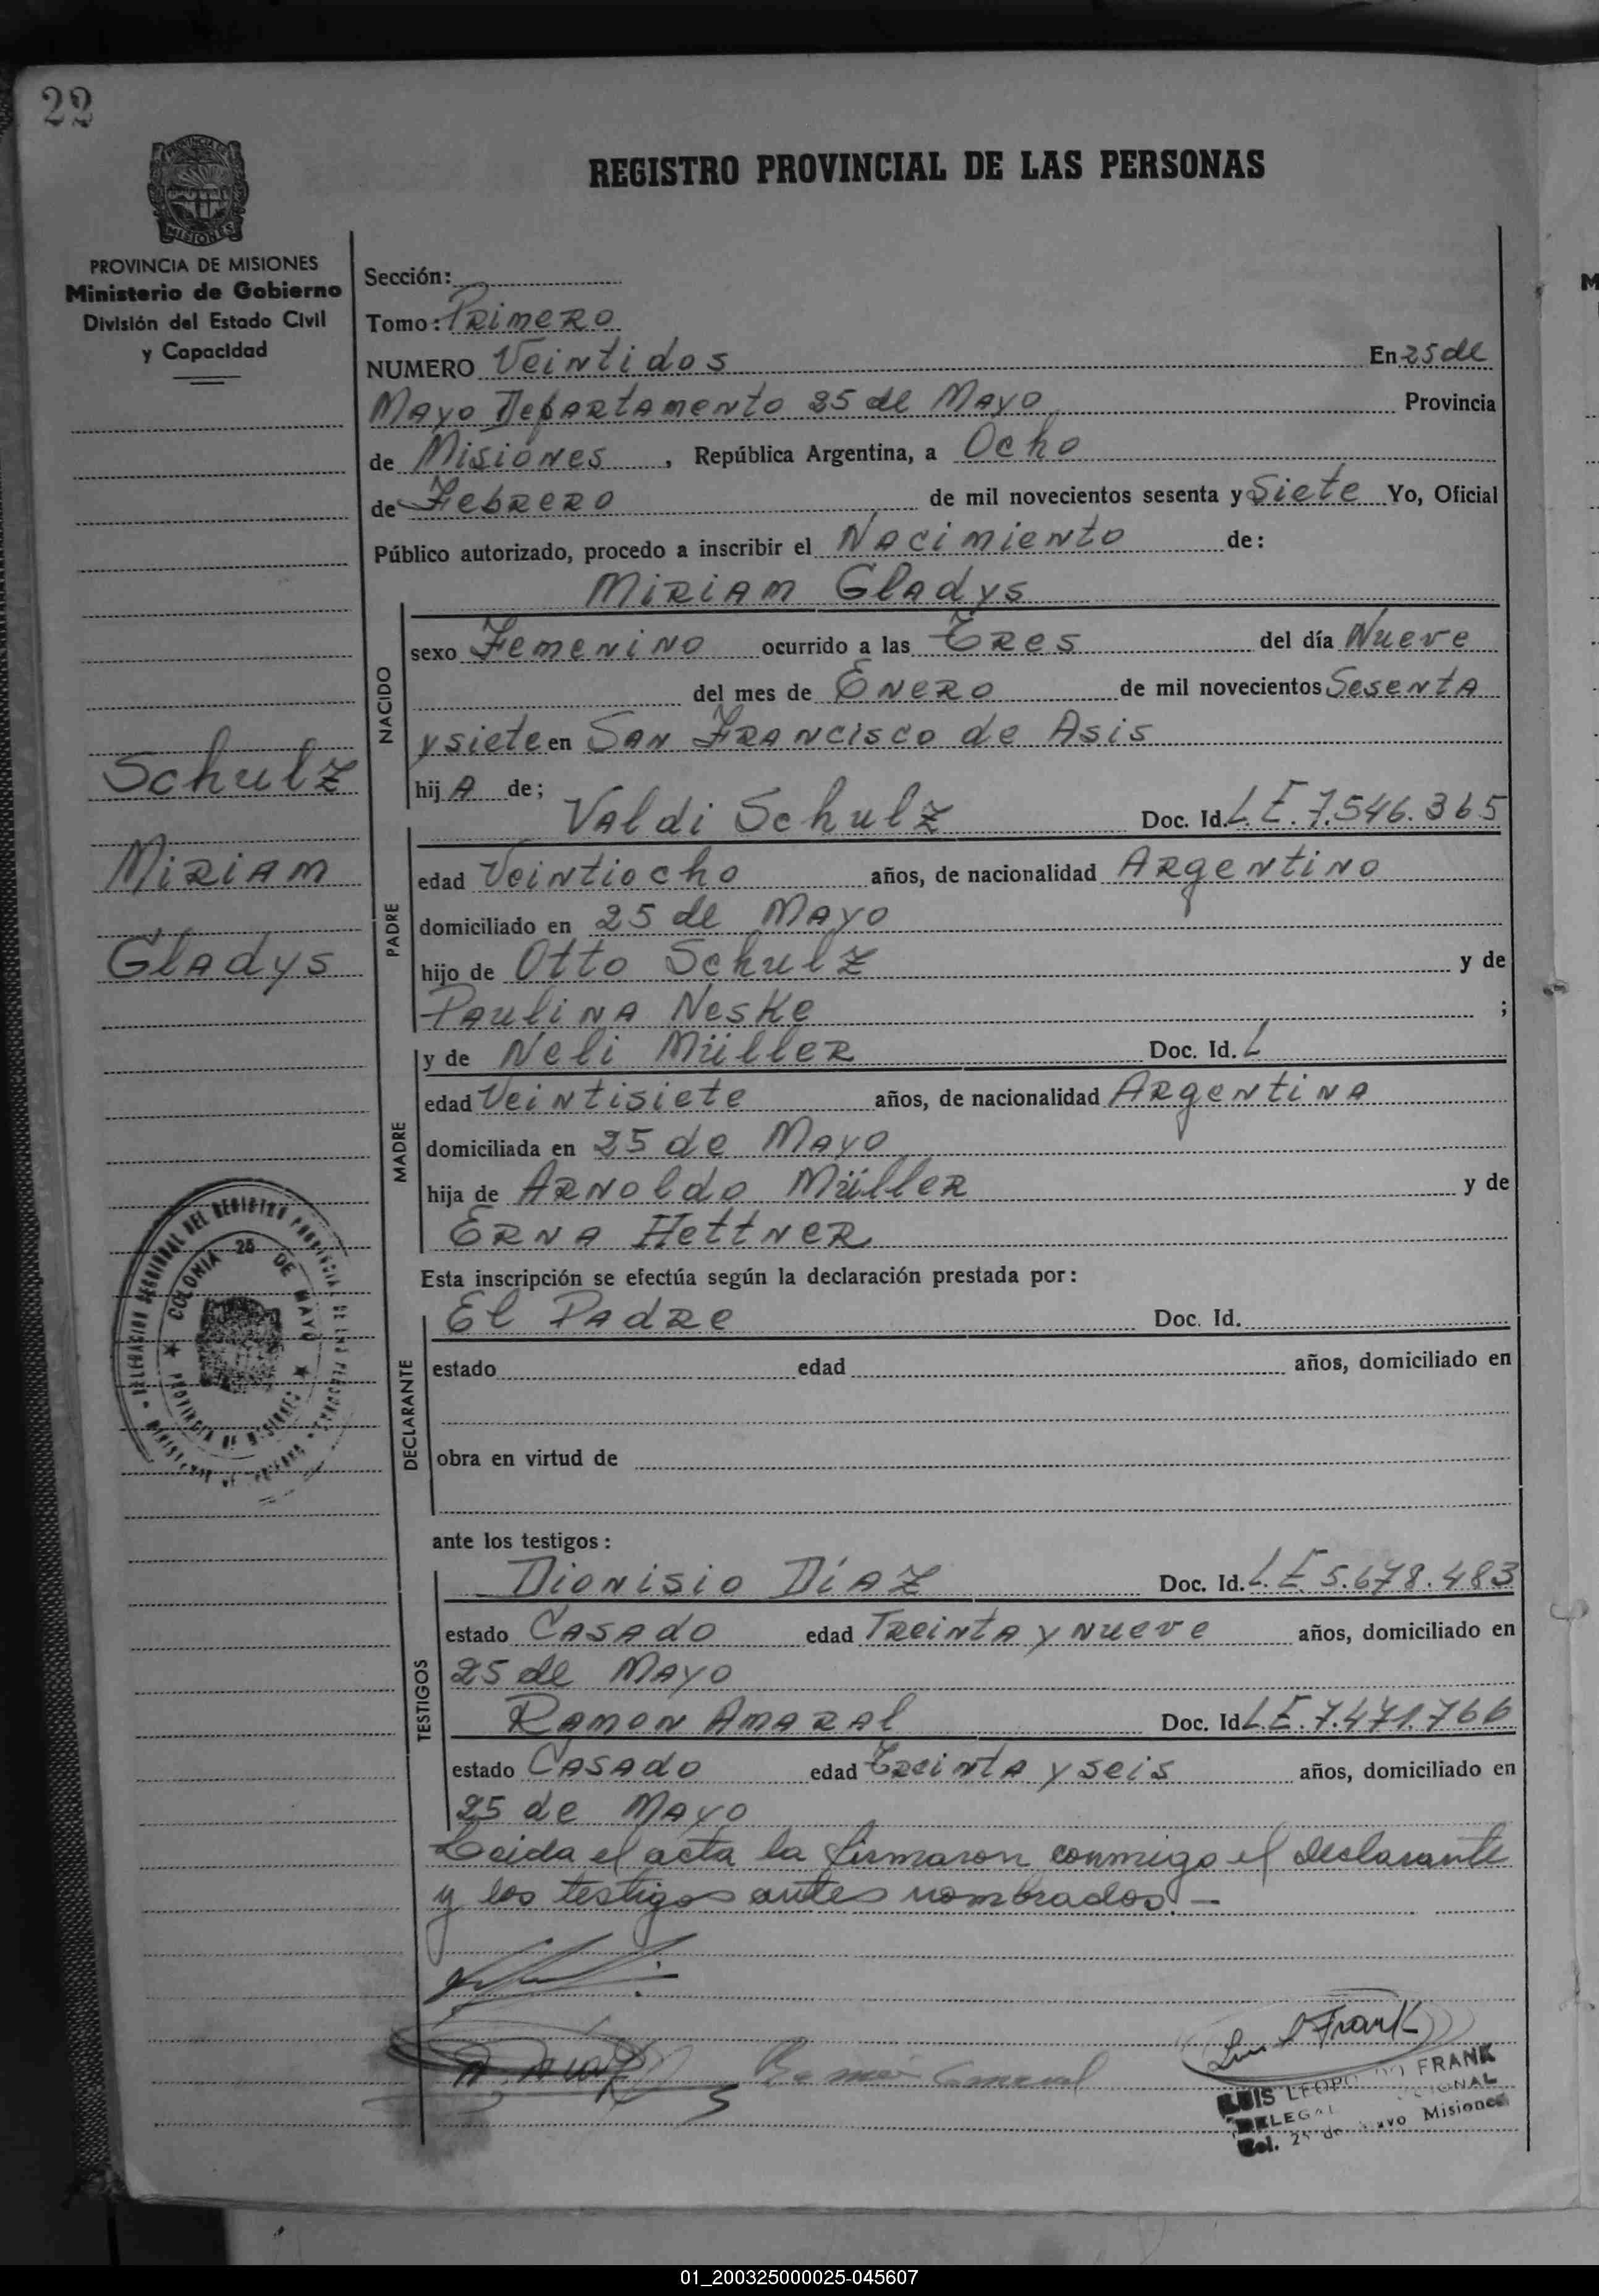 22
REGISTRO PROVINCIAL DE LAS PERSONAS
PROVINCIA DE MISIONES
Ministerio de Gobierno
División del Estado Civil
y Capacidad
Sección:
Tomo: Primero
NUMERO Veintidos En 25 de
Mayo Departamento 25 de Mayo Provincia
de Misiones, República Argentina, a Ocho
de Febrero de mil novecientos sesenta y Siete Yo, Oficial
Público autorizado, procedo a inscribir el Nacimiento de:
Miriam Gladys
NACIDO
sexo Femenino ocurrido a las Tres del día Nueve
del mes de Enero de mil novecientos Sesenta
y siete en San Francisco de Asis
hij A de;
Schulz
Miriam
Gladys
PADRE
Valdi Schulz Doc. Id. L.E. 7.546.365
edad Veintiocho años, de nacionalidad Argentino
domiciliado en 25 de Mayo
hijo de Otto Schulz y de
Paulina Neske ;
MADRE
y de Neli Müller Doc. Id. L
edad Veintisiete años, de nacionalidad Argentina
domiciliada en 25 de Mayo
hija de Arnoldo Müller y de
Erna Hettner
Esta inscripción se efectúa según la declaración prestada por:
DECLARANTE
El Padre Doc. Id.
estado edad años, domiciliado en
obra en virtud de
DELEGACION REGIONAL DEL REGISTRO PROVINCIAL DE LAS PERSONAS
COLONIA 25 DE MAYO
PROVINCIA DE MISIONES
ante los testigos:
TESTIGOS
Dionisio Díaz Doc. Id. L.E 5.678.483
estado Casado edad Treinta y nueve años, domiciliado en
25 de Mayo
Ramon Amaral Doc. Id L.E. 7.471.766
estado Casado edad Treinta y seis años, domiciliado en
25 de Mayo
Leida el acta la firmaron conmigo el declarante
y los testigos antes nombrados.—
Luis L Frank
LUIS LEOPOLDO FRANK
Col. 25 de Mayo Misiones
01_200325000025-045607